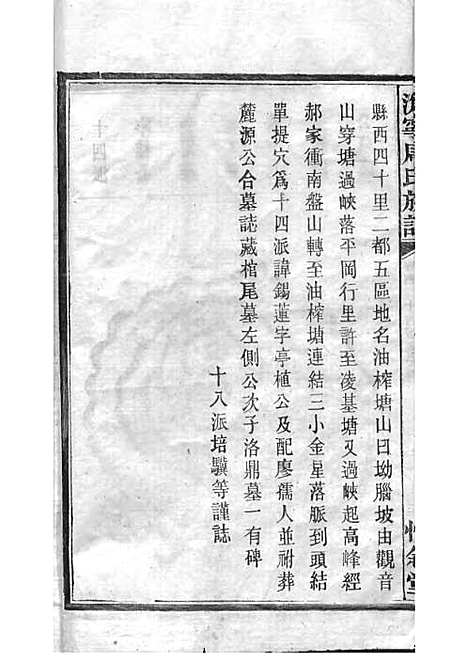 寧周氏族譜
縣西四十里二都五區地名油榨塘山日坳腦坡由觀音
山穿塘過峽落平岡行里許至凌基塘又過峽起高峰經
郝家衝南盤山轉至油榨塘連結三小金星落脈到頭結
單提穴爲十四派諱錫蓮字亭植公及配廖孺人並祔葬
麓源公合墓誌藏棺尾墓左側公次子洛鼎墓一有碑
十八派培驥等謹誌